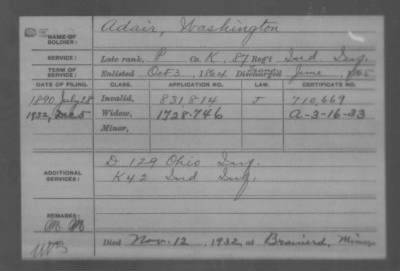 NAME OF SOLDIER: Adair, Washington
SERVICE: Late rank, P Co. K, 87 Reg't Ind. Inf.
TERM OF SERVICE: Enlisted Oct. 3, 1864 Discharged June, 1865
Trans
DATE OF FILING. CLASS. APPLICATION NO. LAW. CERTIFICATE NO.
1890 July 28 Invalid, 831814 J 710,669
1932, Dec 5 Widow, 1728-746 A-3-16-33
Minor,
ADDITIONAL SERVICES: D 129 Ohio Inf.
K 42 Ind Inf.
REMARKS:
Died Nov. 12, 1932, at Brainerd, Minn